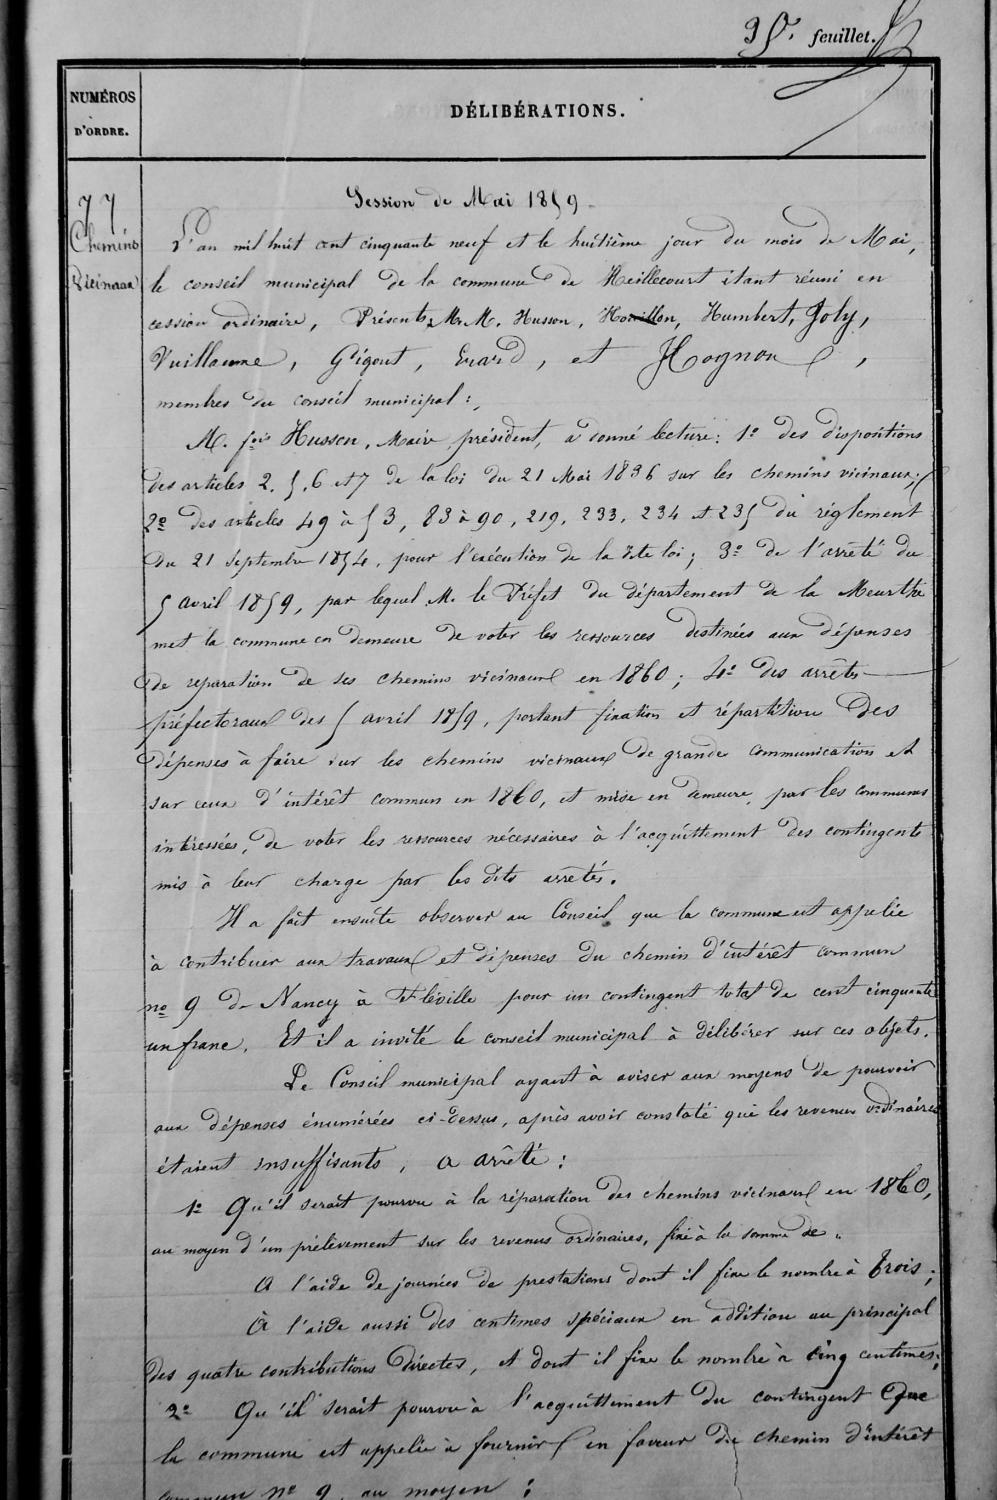 35. feuillet.
NUMÉROS
D'ORDRE.
DÉLIBÉRATIONS.
77
Chemins
Vicinaux
Session de Mai 1859 -
L'an mil huit cent cinquante neuf et le huitième jour du mois de Mai,
le conseil municipal de la commune de Heillecourt étant réuni en
cession ordinaire, Présents M.M. Husson, Houillon, Humbert, Joly,
Vuillaume, Gigout, Evard, et Hognon,
membres du conseil municipal :,
M. fois Husson, Maire, président, a donné lecture : 1º des dispositions
des articles 2, 5, 6 et 7 de la loi du 21 Mai 1836 sur les chemins vicinaux ;
2º des articles 49 à 53, 83 à 90, 219, 233, 234 et 235 du réglement
du 21 Septembre 1854, pour l'exécution de la dte loi ; 3º de l'arrêté du
5 avril 1859, par lequel M. le Préfet du département de la Meurthe
met la commune en demeure de voter les ressources destinées aux dépenses
de reparation de ses chemins vicinaux en 1860 ; 4º des arrêtés
préfectoraux des 5 avril 1859, portant fixation et répartition des
dépenses à faire sur les chemins vicinaux de grande communication et
sur ceux d'intérêt commun en 1860, et mise en demeure, par les communes
intéressées, de voter les ressources nécessaires à l'acquittement des contingents
mis à leur charge par les dits arrêtés.
Il a fait ensuite observer au Conseil que la commune est appelée
à contribuer aux travaux et dépenses du chemin d'intérêt commun
nº 9 de Nancy à Fléville pour un contingent total de cent cinquante
un franc. Et il a invité le conseil municipal à délibérer sur ces objets.
Le Conseil municipal ayant à aviser aux moyens de pourvoir
aux dépenses énumérées ci-dessus, après avoir constaté que les revenus ordinaires
étaient insuffisants, a arrêté :
1º Qu'il serait pourvu à la réparation des chemins vicinaux en 1860,
au moyen d'un prélèvement sur les revenus ordinaires, fixé à la somme de "
A l'aide de journées de prestations dont il fixe le nombre à trois ;
À l'aide aussi des centimes spéciaux en addition au principal
des quatre contributions directes, et dont il fixe le nombre à cinq centimes ;
2º Qu'il serait pourvu à l'acquittement du contingent que
la commune est appelée à fournir en faveur du chemin d'intérêt
commun nº 9, au moyen :